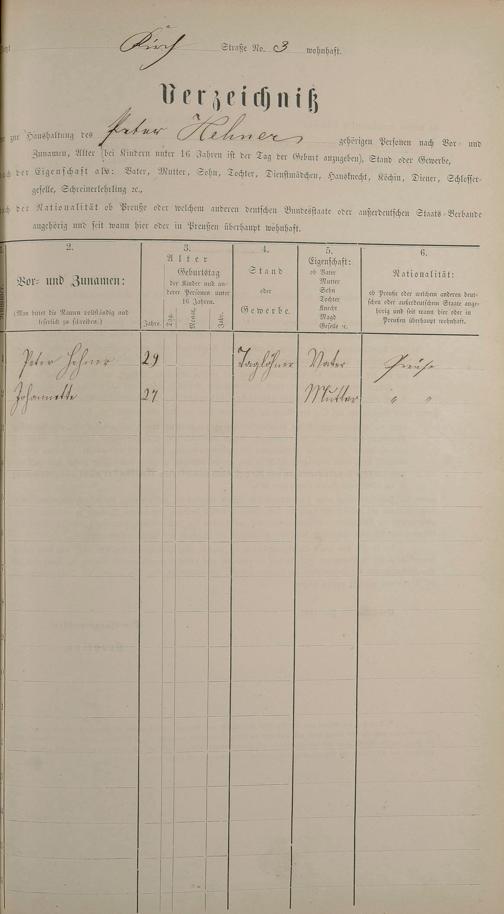 Kirch Straße No. 3 wohnhaft.
Verzeichniß
zur Haushaltung des Peter Hehner gehörigen Personen nach Vor- und
Zunamen, Alter (bei Kindern unter 16 Jahren ist der Tag der Geburt anzugeben), Stand oder Gewerbe,
der Eigenschaft als: Vater, Mutter, Sohn, Tochter, Dienstmädchen, Hausknecht, Köchin, Diener, Schlosser-
geselle, Schreinerlehrling ꝛc.,
der Nationalität ob Preuße oder welchem anderen deutschen Bundesstaate oder außerdeutschen Staats-Verbande
angehörig und seit wann hier oder in Preußen überhaupt wohnhaft.
2.
Vor- und Zunamen:
(Man bittet die Namen vollständig und
leserlich zu schreiben.)
3.
Alter
Geburtstag
der Kinder und an-
derer Personen unter
16 Jahren.
Jahre. Tag. Monat. Jahr.
4.
Stand
oder
Gewerbe.
5.
Eigenschaft:
ob Vater
Mutter
Sohn
Tochter
Knecht
Magd
Geselle ꝛc.
6.
Nationalität:
ob Preuße oder welchem anderen deut-
schen oder außerdeutschen Staate ange-
hörig und seit wann hier oder in
Preußen überhaupt wohnhaft.
Peter Hehner 29 Taglöhner Vater Preuße
Johannette 27 Mutter " "